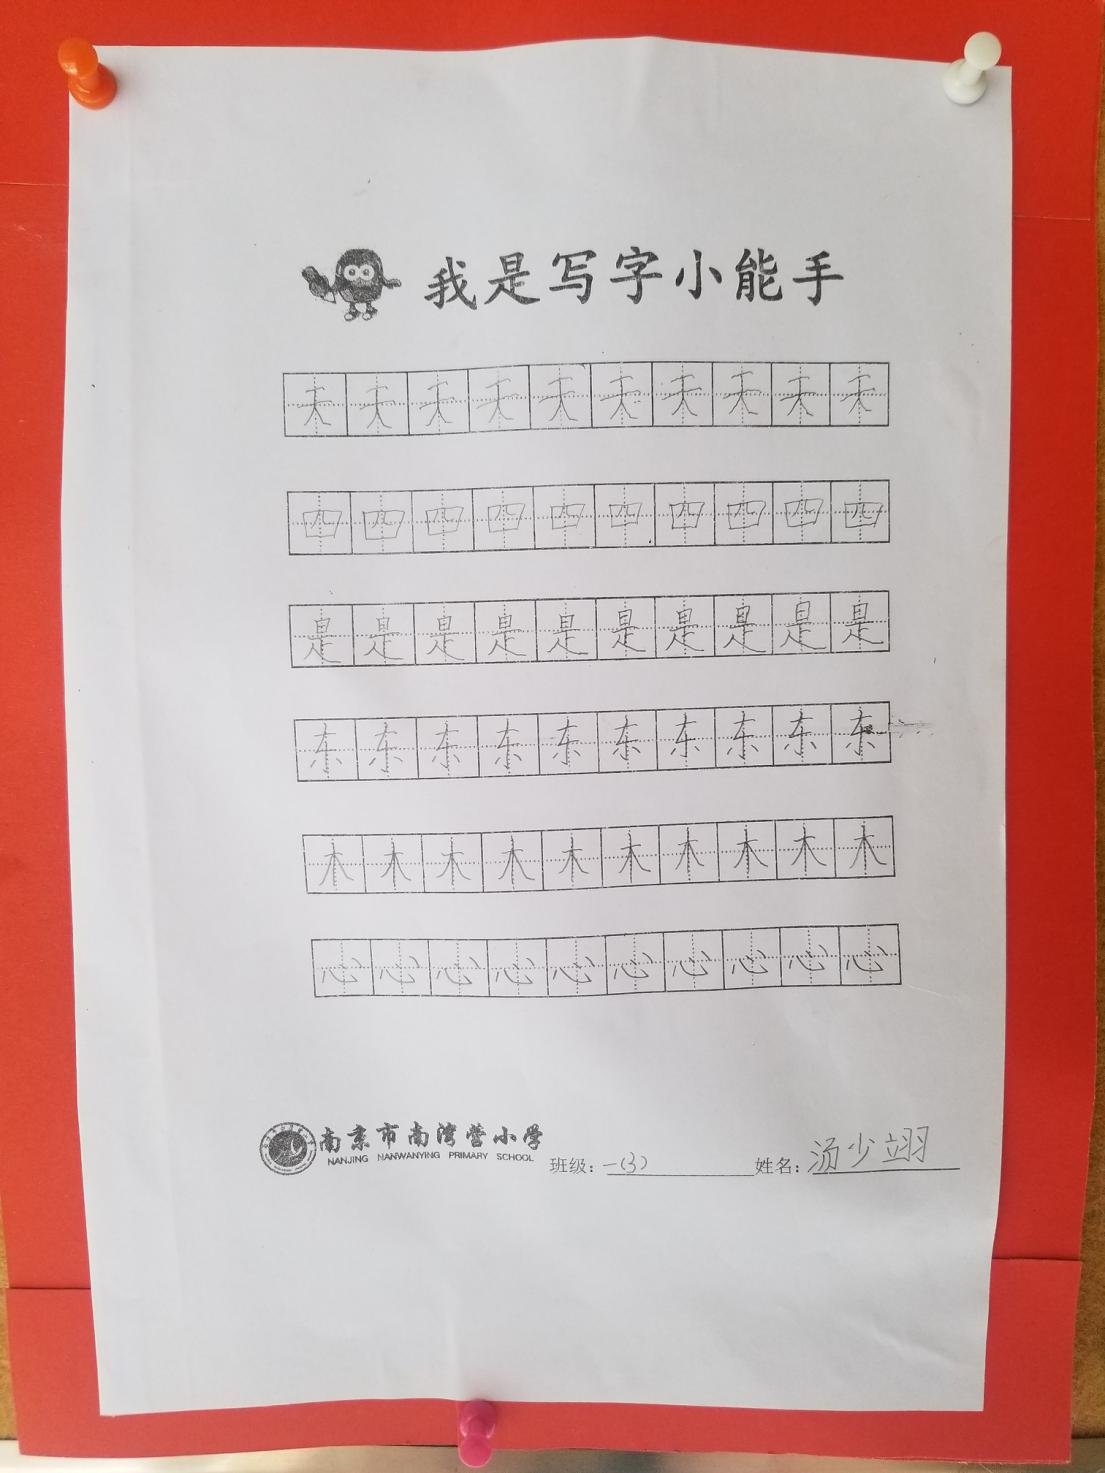 我是写字小能手
天天天天天天天天天天
四四四四四四四四四四
是是是是是是是是是是
东东东东东东东东东东
木木木木木木木木木木
心心心心心心心心心心
南京市南湾营小学
NANJING NANWANYING PRIMARY SCHOOL
班级：一(3) 姓名：汤少翊